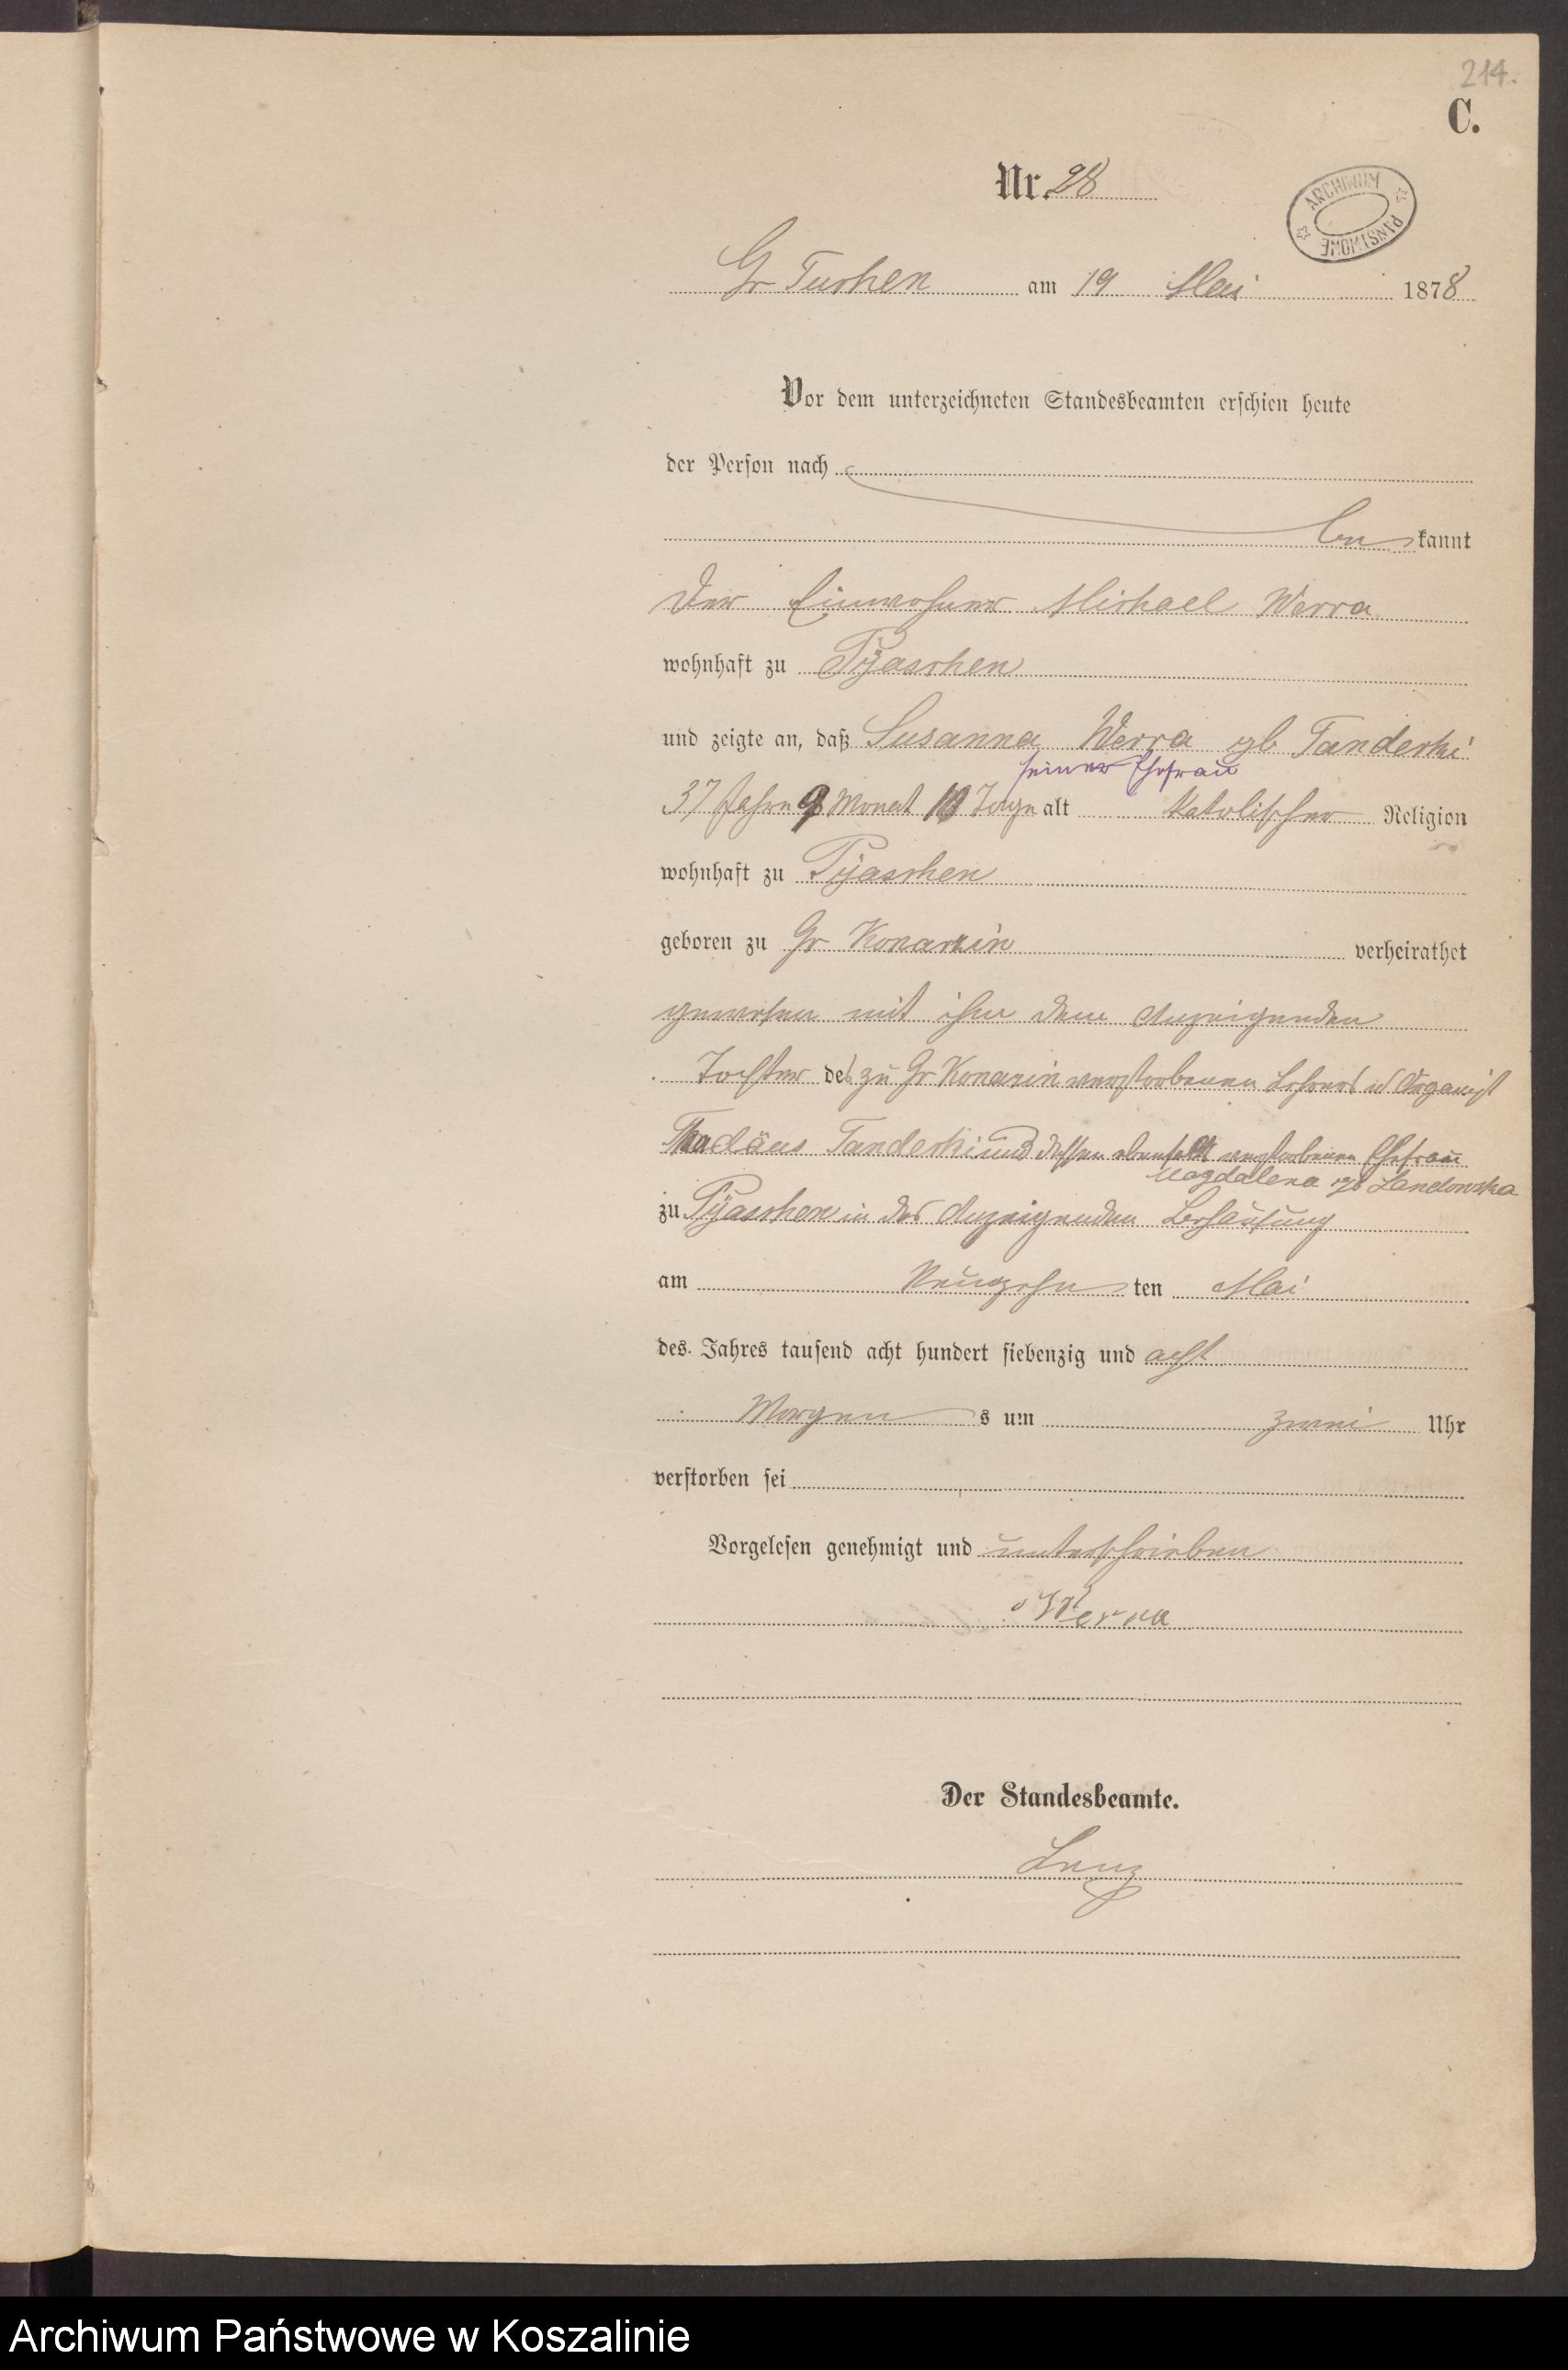 214.
C.
Nr. 28
ARCHIWUM PAŃSTWOWE
Gr Tuchen am 19 Mai 1878
Vor dem unterzeichneten Standesbeamten erschien heute
der Person nach
be kannt
Der Einwohner Michael Werra
wohnhaft zu Pyaschen
und zeigte an, daß Susanna Werra gb Tanderski
seiner Ehefrau
37 Jahre 9 Monat 10 Tage alt katolischer Religion
wohnhaft zu Pyaschen
geboren zu Gr Konarzin verheirathet
gewesen mit ihm dem Anzeigenden
Tochter des zu Gr Konarzin verstorbenen Lehrers u Organist
Thadäus Tanderski und dessen ebenfalls verstorbenen Ehefrau
Magdalena gb Landowska
zu Pyaschen in des Anzeigenden Behausung
am Neunzehn ten Mai
des Jahres tausend acht hundert siebenzig und acht
Morgen s um zwei Uhr
verstorben sei
Vorgelesen genehmigt und unterschrieben
Werra
Der Standesbeamte.
Lenz
Archiwum Państwowe w Koszalinie